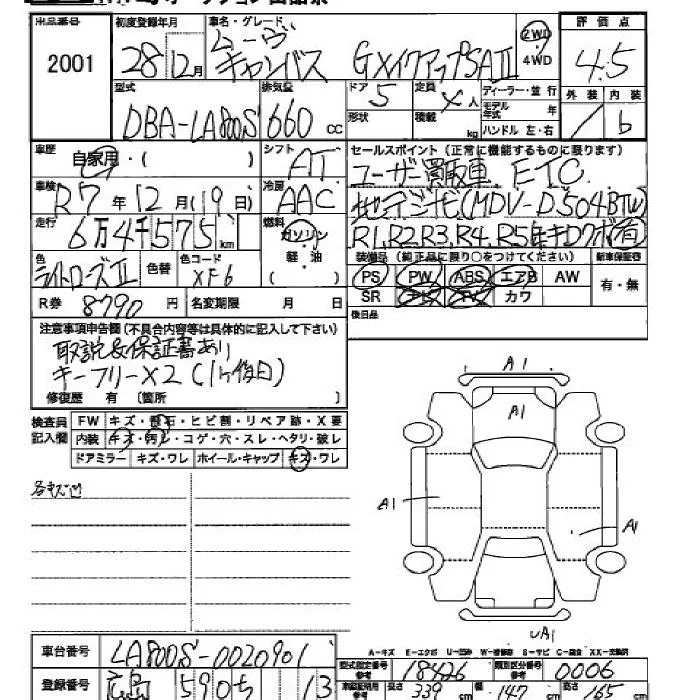 出品番号 2001
初度登録年月 28年12月
車名・グレード ムーヴ キャンバス GXメイクアップSAⅡ
2WD 4WD
評価点 4.5
外装 / 内装 b
型式 DBA-LA800S
排気量 660 cc
ドア 5
形状
定員 人
積載 kg
ディーラー・並行
モデル年式 年
ハンドル 左・右
車歴 自家用・( )
シフト AT
車検 R7年12月(19日)
冷房 AAC
走行 6万4千575km
燃料 ガソリン 軽・油 ・
色 ライトローズⅡ
色替
色コード XF6
R券 8790円
名変期限 月 日
セールスポイント (正常に機能するものに限ります)
ユーザー買取車 ETC
地デジナビ(MDV-D504BTW)
R1,R2,R3,R4,R5
装備品 (純正品に限り○をつけてください)
新車保証書
PS PW ABS エアB AW
SR ナビ TV カワ
有・無
後日品
注意事項申告欄 (不具合内容等は具体的に記入して下さい)
取説&保証書あり
キーフリーX2(1ケ後日)
修復歴 有 〔箇所 〕
検査員記入欄
FW キズ・飛石・ヒビ割・リペア跡・X要
内装 キズ・汚レ・コゲ・穴・スレ・ヘタリ・破レ
ドアミラー キズ・ワレ ホイール・キャップ キズ・ワレ
各キズ凹
A1
A1
A1
A1
UA1
A-キズ E-エクボ U-凹み W-補修跡 S-サビ C-腐食 XX-交換済
車台番号 LA800S-0020901
型式指定番号 参考 18426
類別区分番号 参考 0006
登録番号 広島 590 ち 13
車庫証明用 参考 長さ 339 cm 幅 147 cm 高さ 165 cm